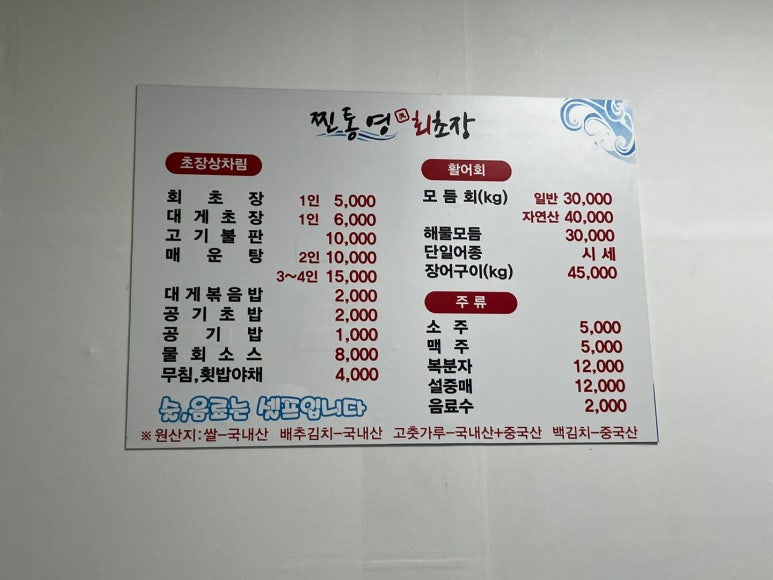 찐통영 회초장
초장상차림
회초장 1인 5,000
대게초장 1인 6,000
고기불판 10,000
매운탕 2인 10,000
3~4인 15,000
대게볶음밥 2,000
공기초밥 2,000
공기밥 1,000
물회소스 8,000
무침,횟밥야채 4,000
숯,음료는 셀프입니다
활어회
모듬회(kg) 일반 30,000
자연산 40,000
해물모듬 30,000
단일어종 시세
장어구이(kg) 45,000
주류
소주 5,000
맥주 5,000
복분자 12,000
설중매 12,000
음료수 2,000
※원산지:쌀-국내산 배추김치-국내산 고춧가루-국내산+중국산 백김치-중국산